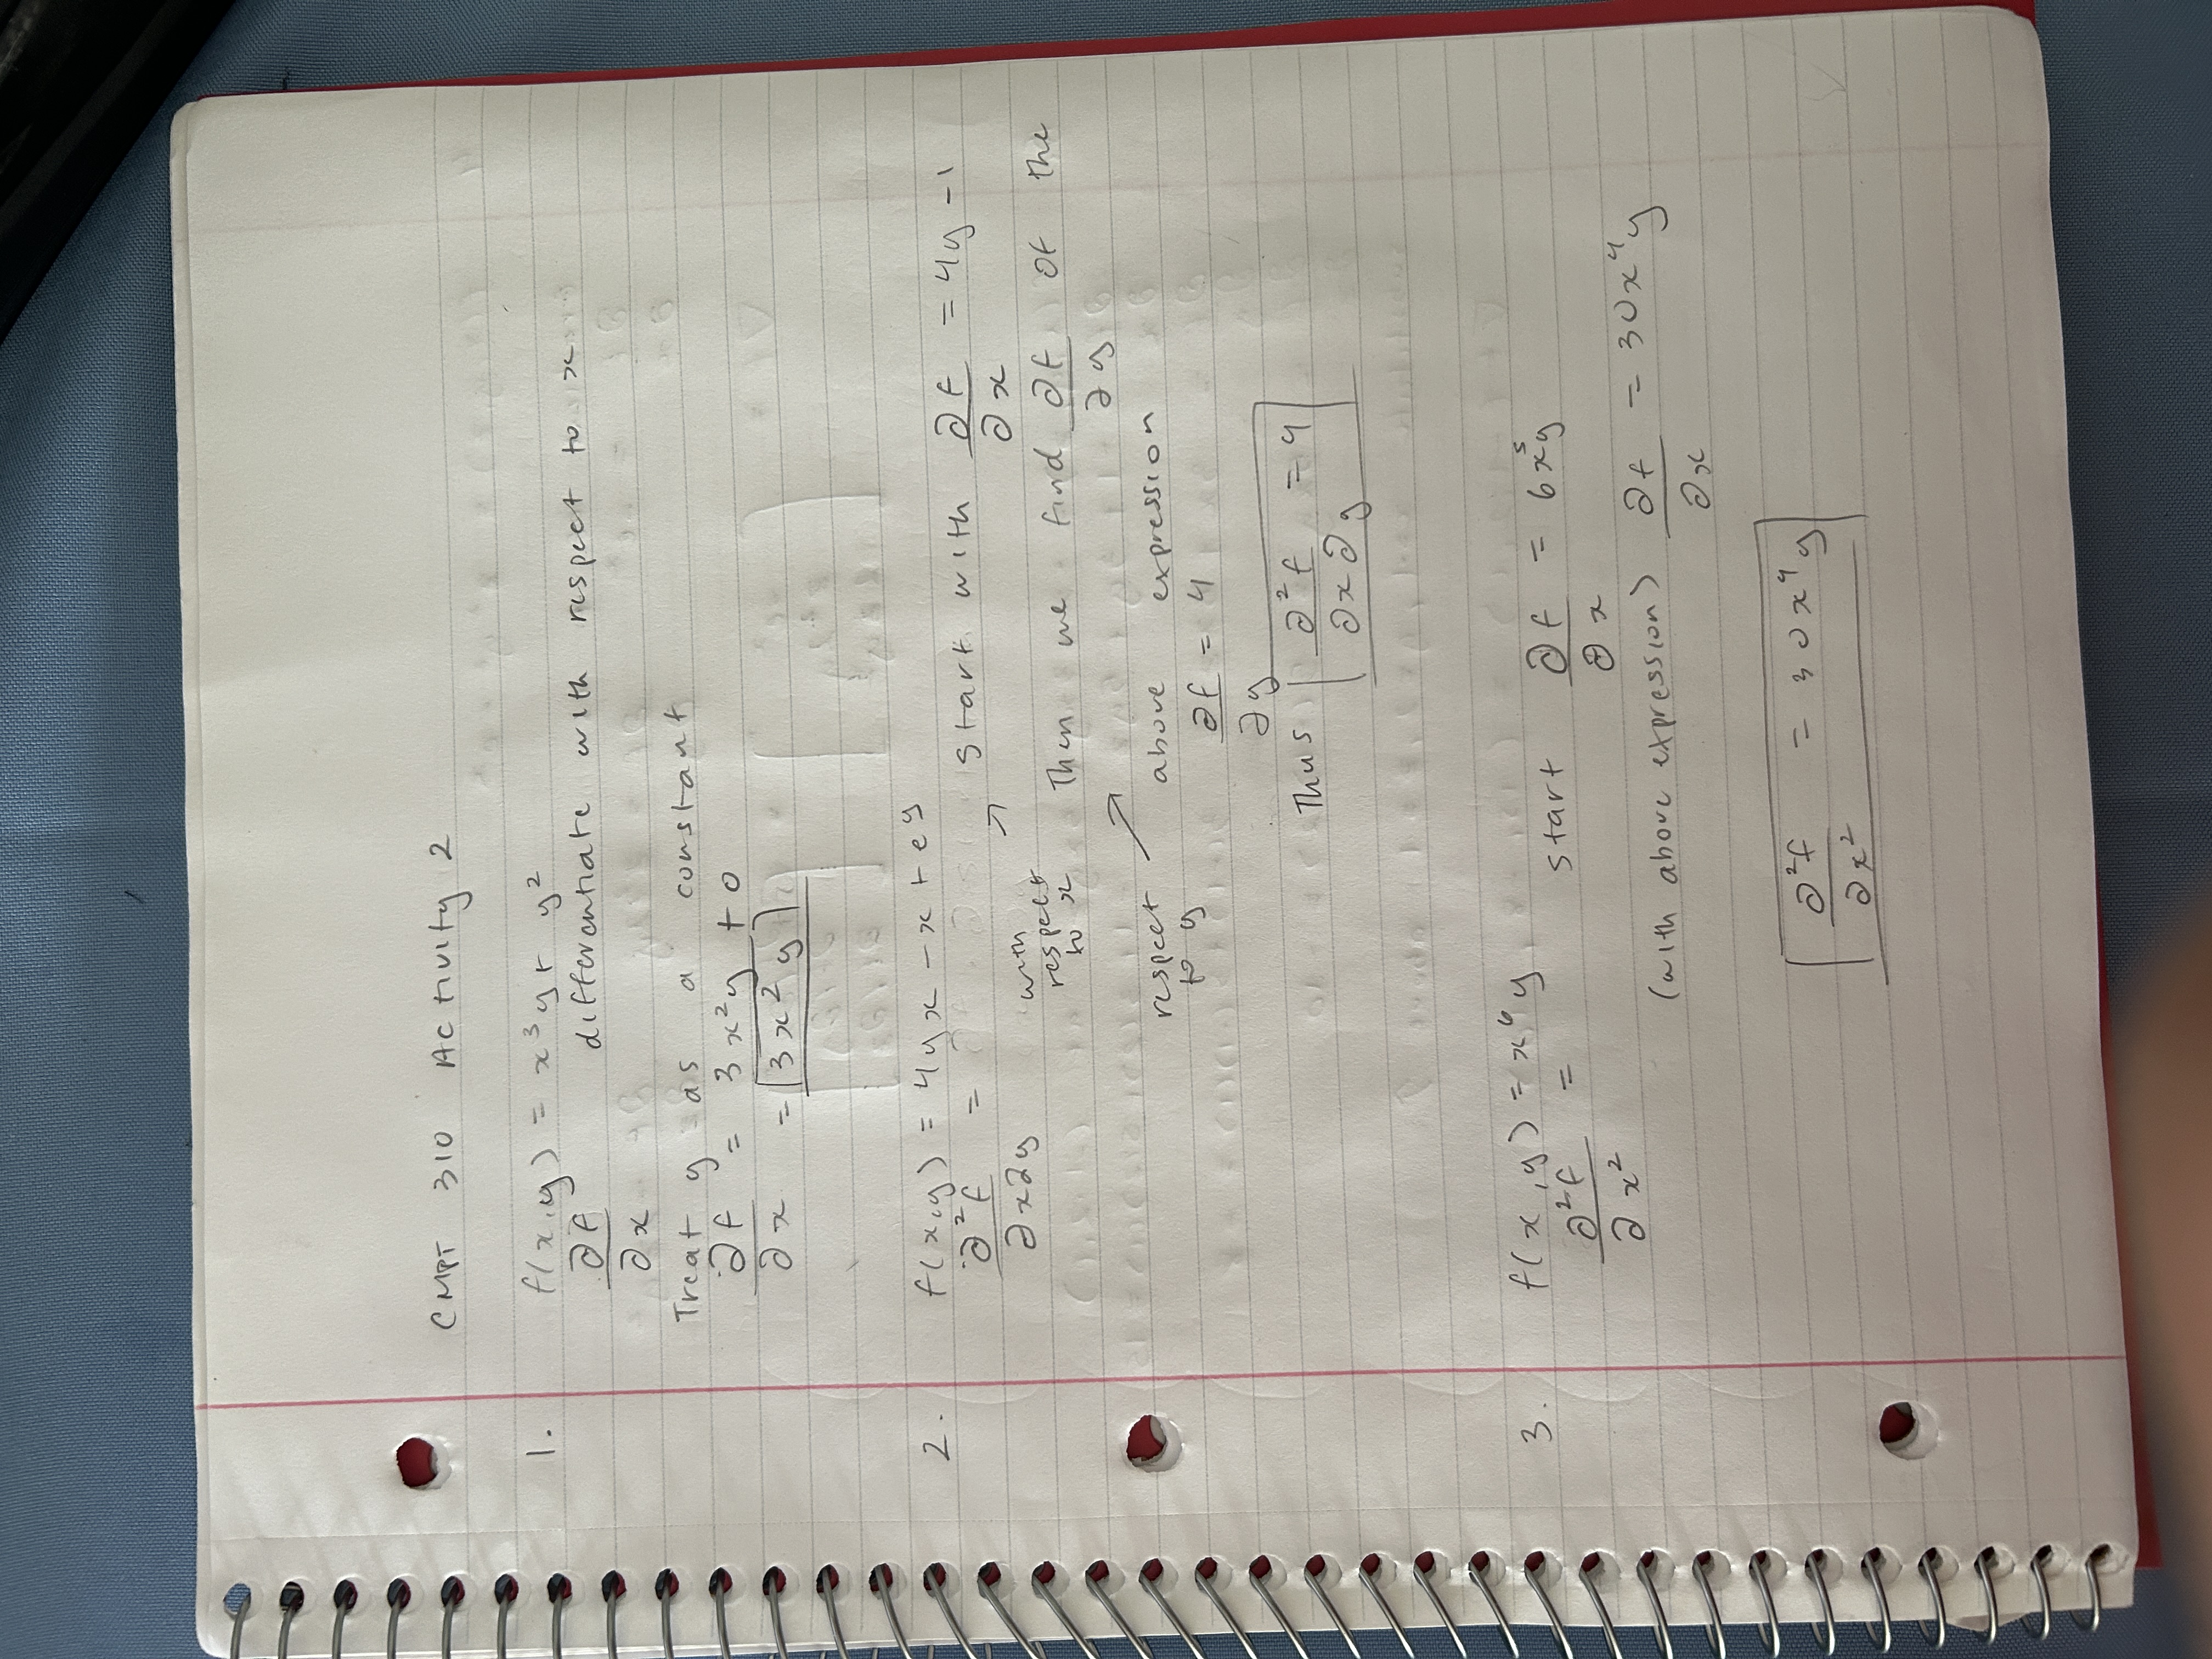 CMPT 310 Activity 2
1. f(x,y) = x³y + y²
∂f/∂x differentiate with respect to x
Treat y as a constant
∂f/∂x = 3x²y + 0
= 3x²y
2. f(x,y) = 4yx - x + e^y
∂²f/∂x∂y = start with ∂f/∂x = 4y - 1
with
respect
to x
Then we find ∂f/∂y of the
respect
to y
above expression
∂f/∂y = 4
Thus ∂²f/∂x∂y = 4
3. f(x,y) = x⁶y
∂²f/∂x² = start ∂f/∂x = 6x⁵y
(with above expression) ∂f/∂x = 30x⁴y
∂²f/∂x² = 30x⁴y